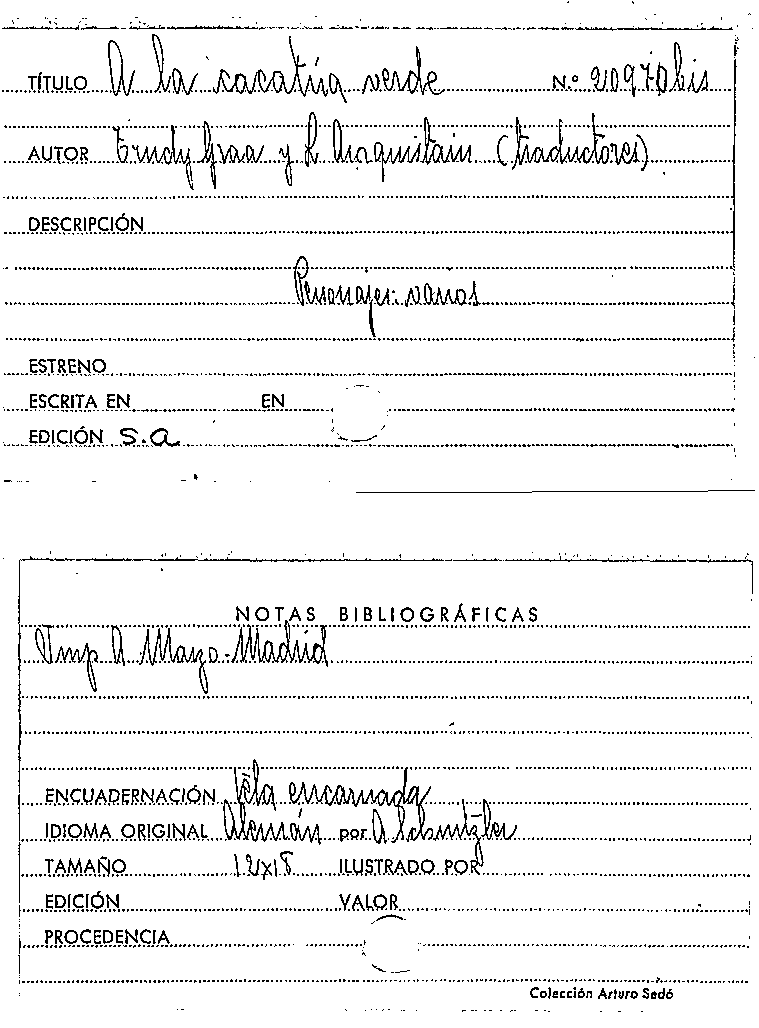 TÍTULO A la cacatúa verde N.º 20970bis
AUTOR Trudy Graa y L Araquistain (traductores)
DESCRIPCIÓN
Personajes: varios
ESTRENO
ESCRITA EN EN
EDICIÓN S.a
NOTAS BIBLIOGRÁFICAS
Imp A Marzo-Madrid
ENCUADERNACIÓN tela encarnada
IDIOMA ORIGINAL Alemán por A Schnitzler
TAMAÑO 12x18 ILUSTRADO POR
EDICIÓN VALOR
PROCEDENCIA
Colección Arturo Sedó